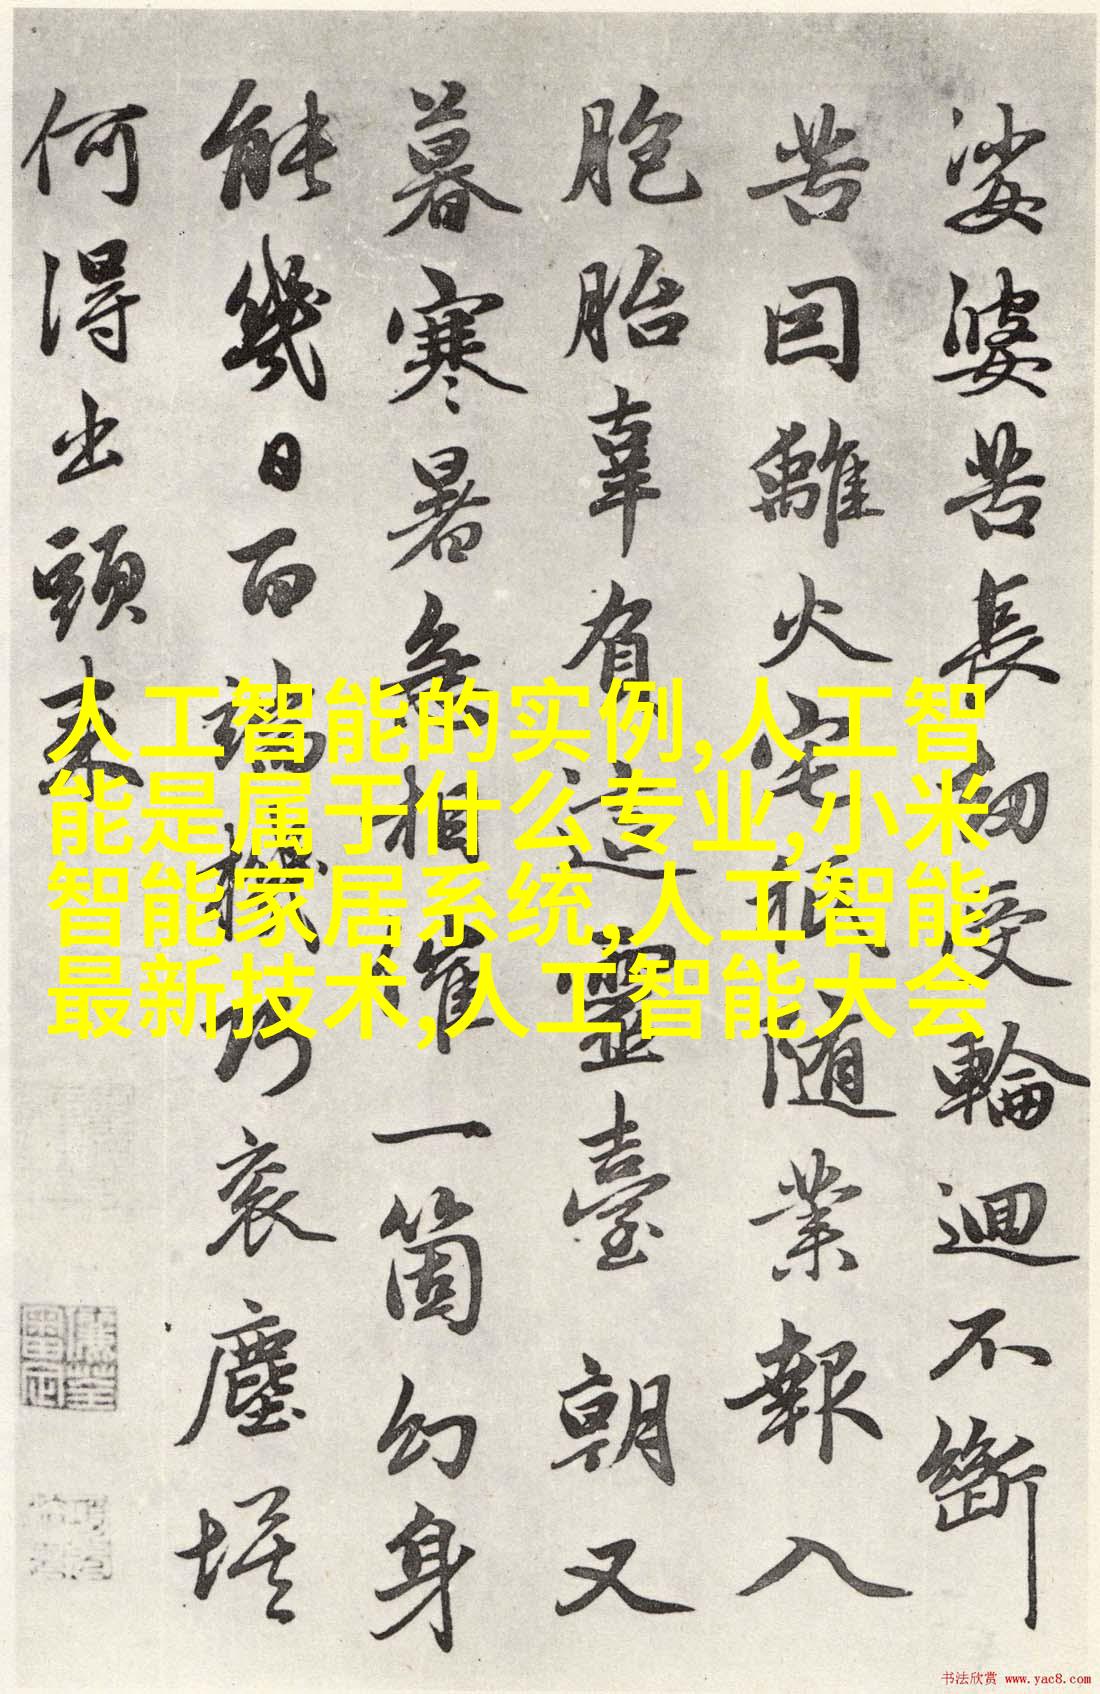 娑婆苦長劫受輪迴不斷
苦因離火宅柢随業報入
胞胎辜有這靈臺朝又
暮寒暑無相催一箇幻身
能幾日百端機巧衮塵埃
何得出頭来
人工智能的实例,人工智
能是属于什么专业,小米
智能家居系统,人工智能
最新技术,人工智能大会
书法欣赏 www.yac8.com